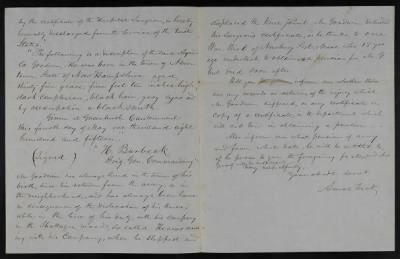 by the certificate of the Hospital Surgeon, is hereby
honorably discharged from the Service of the United
States.
"The following is a description of the said
Goodwin. He was born in the town of
State of New Hampshire aged
thirty five years, five feet ten inches high,
dark complexion, black hair, grey eyes and
by occupation a black smith
Given at Greenbush Cantonment
this fourth day of May one thousand eight
hundred and fifteen.
(Signed) H Burbeck
Brig. Gen. Commanding"
Mr Goodwin has always lived in the town of his
birth, since his return from the army, or in
the neighborhood, and has always been lame
in consequence of the dislocation of his knee
while in the line of his duty, with his company
in the woods, so called. He was
with his Company, when he slipped and
displaced the knee joint. Mr. Goodwin
his Surgeon's certificate, as he thinks to one
of Newbury Port, Mass. who 15 years
ago undertook to obtain a pension for Mr G
but died soon after.
Will you inform me whether there
are any records or returns of the injury which
Mr. Goodwin suffered, or any certificate or
copy of a certificate, in the department which
will aid him in obtaining a pension.
Also inform me what pension if any
and from what date, he will be entitled to,
if he proves to you the foregoing
Very respectfully
Your obdt. Servt